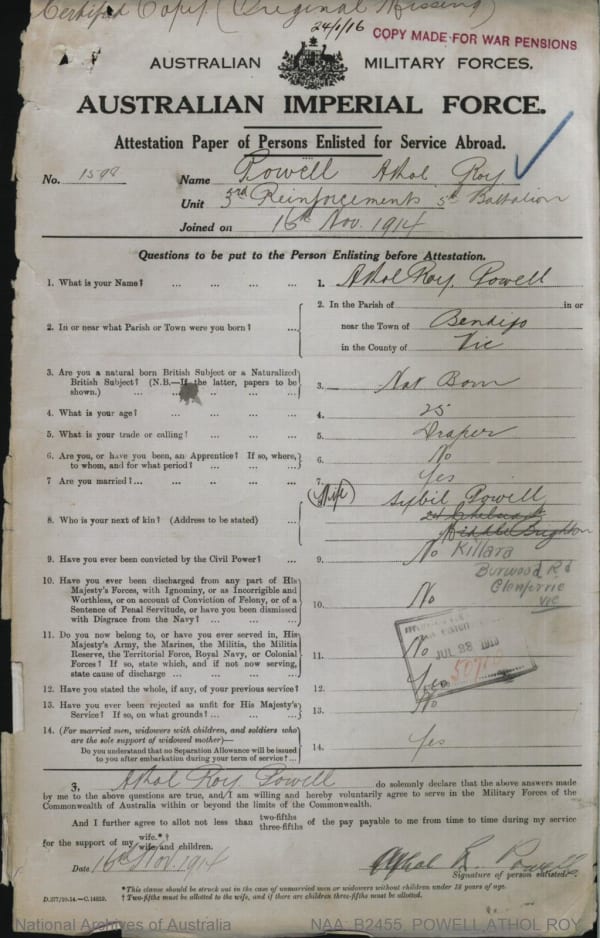 Certified Copy (Original Missing)
24/1/16 COPY MADE FOR WAR PENSIONS
AUSTRALIAN MILITARY FORCES.
AUSTRALIAN IMPERIAL FORCE.
Attestation Paper of Persons Enlisted for Service Abroad.
No. 1598 Name Powell Athol Roy
Unit 3rd Reinforcements 5th Battalion
Joined on 16th Nov. 1914
Questions to be put to the Person Enlisting before Attestation.
1. What is your Name? ... ... ... 1. Athol Roy Powell
2. In or near what Parish or Town were you born? ... 2. In the Parish of in or
near the Town of Bendigo
in the County of Vic
3. Are you a natural born British Subject or a Naturalized
British Subject? (N.B.—If the latter, papers to be
shown.) ... ... ... ... 3. Nat Born
4. What is your age? ... ... ... ... 4. 25
5. What is your trade or calling? ... ... ... 5. Draper
6. Are you, or have you been, an Apprentice? If so, where,
to whom, and for what period? ... ... ... 6. No
7 Are you married? ... ... ... ... 7. Yes
8. Who is your next of kin? (Address to be stated) ... 8. (Wife) Sybil Powell
24
Middle Brighton
Killara
Burwood Rd
Glenferrie
Vic
9. Have you ever been convicted by the Civil Power? ... 9. No
10. Have you ever been discharged from any part of His
Majesty's Forces, with Ignominy, or as Incorrigible and
Worthless, or on account of Conviction of Felony, or of a
Sentence of Penal Servitude, or have you been dismissed
with Disgrace from the Navy? ... ... ... 10. No
11. Do you now belong to, or have you ever served in, His
Majesty's Army, the Marines, the Militia, the Militia
Reserve, the Territorial Force, Royal Navy, or Colonial
Forces? If so, state which, and if not now serving,
state cause of discharge ... ... ... 11. No
12. Have you stated the whole, if any, of your previous service? 12. Yes
13. Have you ever been rejected as unfit for His Majesty's
Service? If so, on what grounds? ... ... 13. No
JUL 28
14. (For married men, widowers with children, and soldiers who
are the sole support of widowed mother)—
Do you understand that no Separation Allowance will be issued
to you after embarkation during your term of service? ... 14. Yes
I, Athol Roy Powell do solemnly declare that the above answers made
by me to the above questions are true, and I am willing and hereby voluntarily agree to serve in the Military Forces of the
Commonwealth of Australia within or beyond the limits of the Commonwealth.
And I further agree to allot not less than two-fifths
three-fifths of the pay payable to me from time to time during my service
for the support of my wife.*†
wife and children.
Date 16th Nov. 1914 Athol R. Powell
Signature of person enlisted.
* This clause should be struck out in the case of unmarried men or widowers without children under 18 years of age.
† Two-fifths must be allotted to the wife, and if there are children three-fifths must be allotted.
National Archives of Australia NAA: B2455, POWELL ATHOL ROY